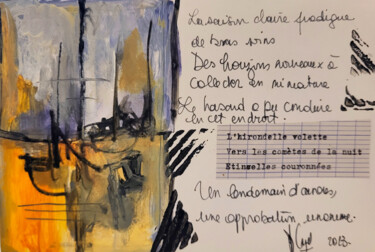 La saison claire prodigue
de bons soins
Des horizons nouveaux à
collecter en miniature
Le hasard a pu conduire
en cet endroit.
L'hirondelle volette
Vers les comètes de la nuit
Etincelles couronnées
Un lendemain d'amours,
une approbation unanime.
2013